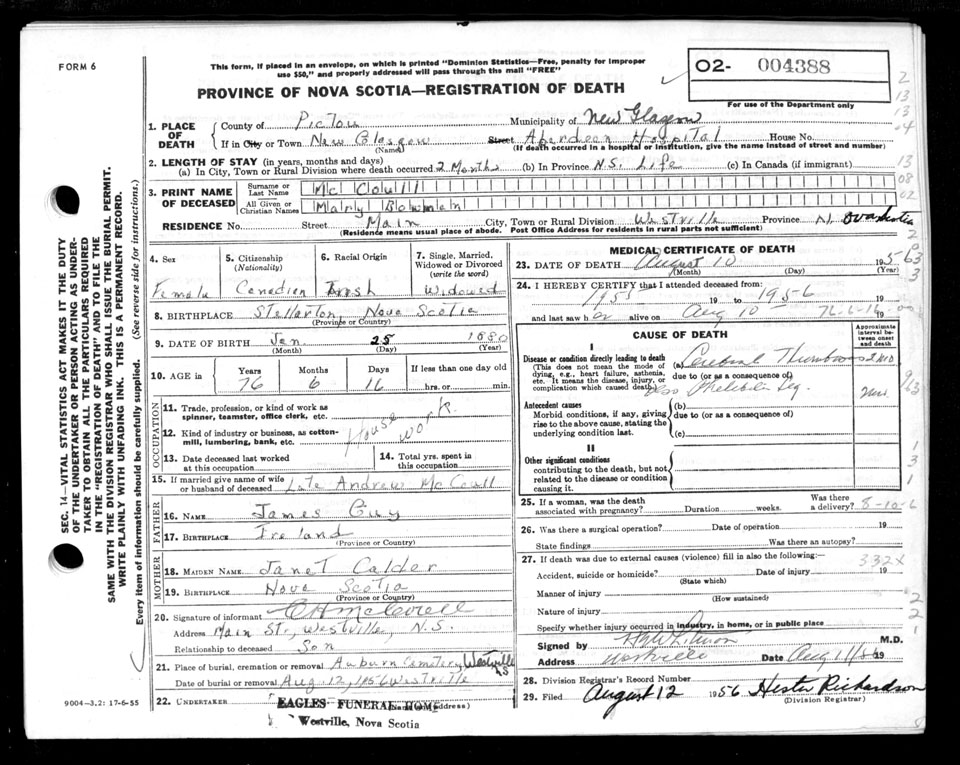 FORM 6
This form, if placed in an envelope, on which is printed "Dominion Statistics—Free, penalty for improper
use $50," and properly addressed will pass through the mail "FREE"
PROVINCE OF NOVA SCOTIA—REGISTRATION OF DEATH
02- 004388
For use of the Department only
1. PLACE OF DEATH
County of Pictou Municipality of New Glasgow
If in City or Town New Glasgow (Name) Street Aberdeen Hospital House No.
(If death occurred in a hospital or institution, give the name instead of street and number)
2. LENGTH OF STAY (in years, months and days)
(a) In City, Town or Rural Division where death occurred 2 Months (b) In Province N.S. Life (c) In Canada (if immigrant)
3. PRINT NAME OF DECEASED
Surname or Last Name Mc Coull
All Given or Christian Names Mary Bowman
RESIDENCE No. Street Main City, Town or Rural Division Westville Province Nova Scotia
(Residence means usual place of abode. Post Office Address for residents in rural parts not sufficient)
4. Sex Female
5. Citizenship (Nationality) Canadian
6. Racial Origin Irish
7. Single, Married, Widowed or Divorced (write the word) Widowed
8. BIRTHPLACE Stellarton, Nova Scotia
(Province or Country)
9. DATE OF BIRTH Jan 25 1880
(Month) (Day) (Year)
10. AGE in Years Months Days If less than one day old
76 6 16 hrs. or min.
OCCUPATION
11. Trade, profession, or kind of work as
spinner, teamster, office clerk, etc.
12. Kind of industry or business, as cotton-
mill, lumbering, bank, etc.
House work
13. Date deceased last worked
at this occupation
14. Total yrs. spent in
this occupation
15. If married give name of wife
or husband of deceased Late Andrew McCoull
FATHER
16. NAME James Guy
17. BIRTHPLACE Ireland
(Province or Country)
MOTHER
18. MAIDEN NAME Janet Calder
19. BIRTHPLACE Nova Scotia
(Province or Country)
20. Signature of informant
Address Main St., Westville, N.S.
Relationship to deceased Son
21. Place of burial, cremation or removal Auburn Cemetery, Westville NS
Date of burial or removal Aug 12, 1956 Westville
22. UNDERTAKER EAGLES FUNERAL HOME
Westville, Nova Scotia
9004-3.2: 17-6-55
SEC. 14—VITAL STATISTICS ACT MAKES IT THE DUTY
OF THE UNDERTAKER OR PERSON ACTING AS UNDER-
TAKER TO OBTAIN ALL THE PARTICULARS REQUIRED
IN THE "REGISTRATION OF DEATH" AND TO FILE THE
SAME WITH THE DIVISION REGISTRAR WHO SHALL ISSUE THE BURIAL PERMIT.
WRITE PLAINLY WITH UNFADING INK. THIS IS A PERMANENT RECORD.
Every item of information should be carefully supplied. (See reverse side for instructions.)
MEDICAL CERTIFICATE OF DEATH
23. DATE OF DEATH August 10 1956
(Month) (Day) (Year)
24. I HEREBY CERTIFY that I attended deceased from:
1955 19 to 1956 19
and last saw her alive on Aug 10 19
76-6-16
CAUSE OF DEATH
Approximate interval between onset and death
I
Disease or condition directly leading to death
(This does not mean the mode of
dying, e.g., heart failure, asthenia,
etc. It means the disease, injury, or
complication which caused death.)
(a) Cerebral Thrombosis
due to (or as a consequence of)
Antecedent causes
Morbid conditions, if any, giving
rise to the above cause, stating the
underlying condition last.
(b)
due to (or as a consequence of)
(c)
II
Other significant conditions
contributing to the death, but not
related to the disease or condition
causing it.
25. If a woman, was the death
associated with pregnancy? Duration weeks. Was there a delivery? 8-10-6
26. Was there a surgical operation? Date of operation 19
State findings Was there an autopsy?
27. If death was due to external causes (violence) fill in also the following:
332X
Accident, suicide or homicide? (State which) Date of injury 19
Manner of injury
(How sustained)
Nature of injury
Specify whether injury occurred in industry, in home, or in public place
Signed by M.D.
Address Westville Date Aug 11/56 19
28. Division Registrar's Record Number
29. Filed August 12 1956 Hester Richardson
(Division Registrar)